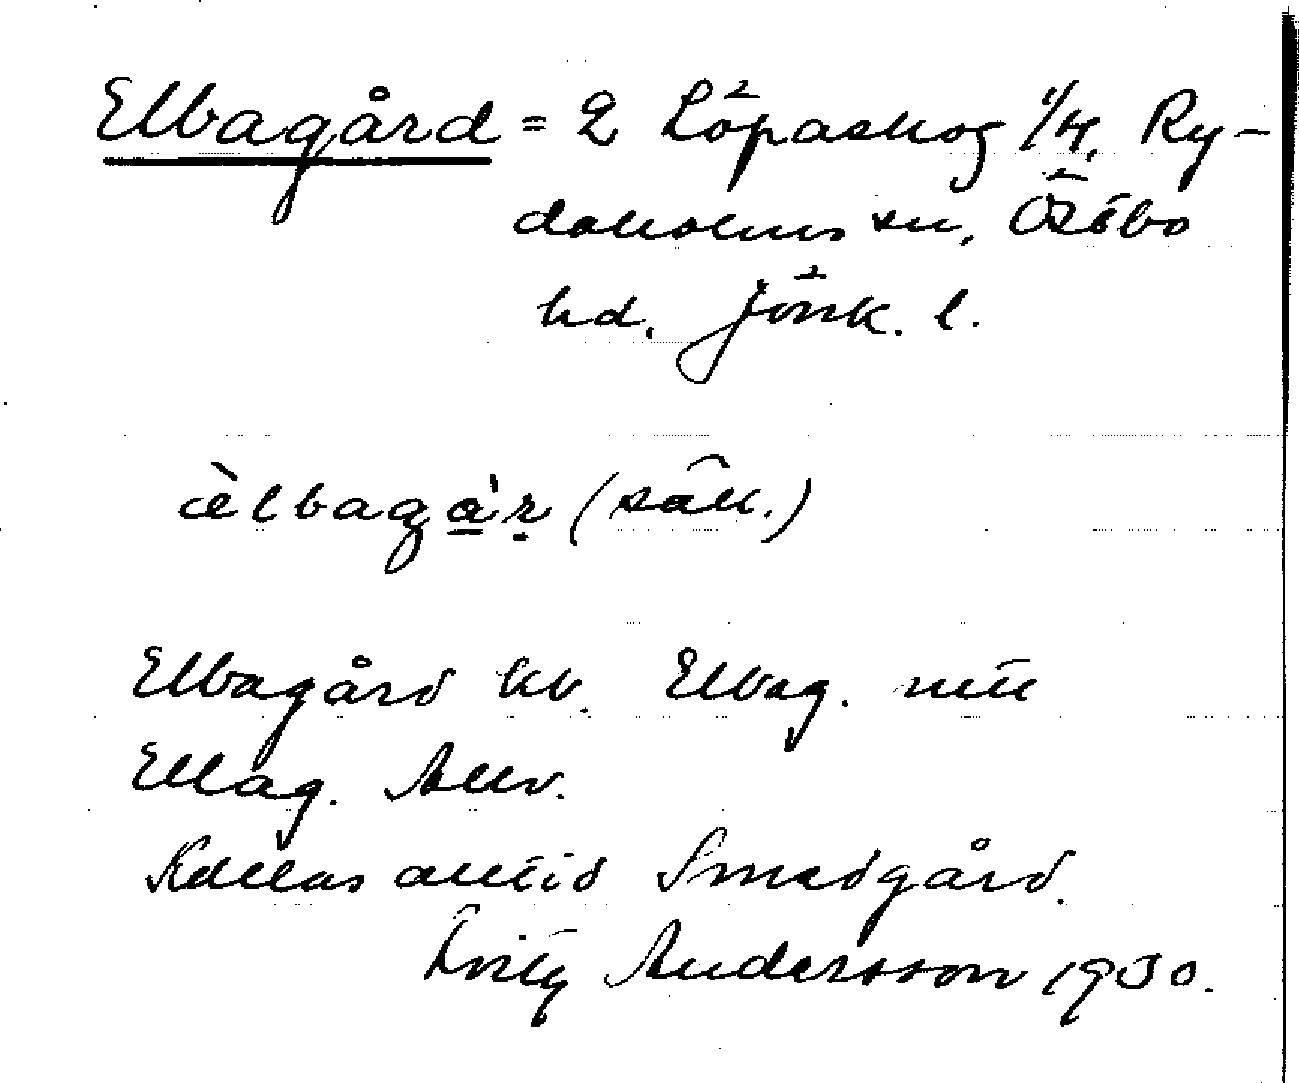 Elbagård = 2 Löpaskog 1/4, Ry-
daholms sn, Östbo
hd, Jönk. l.
èlbagàr (säll.)
Elbagård kb. Elbag. mtl
Ellag. Allv.
Kallas alltid Smedgård.
Andersson 1930.